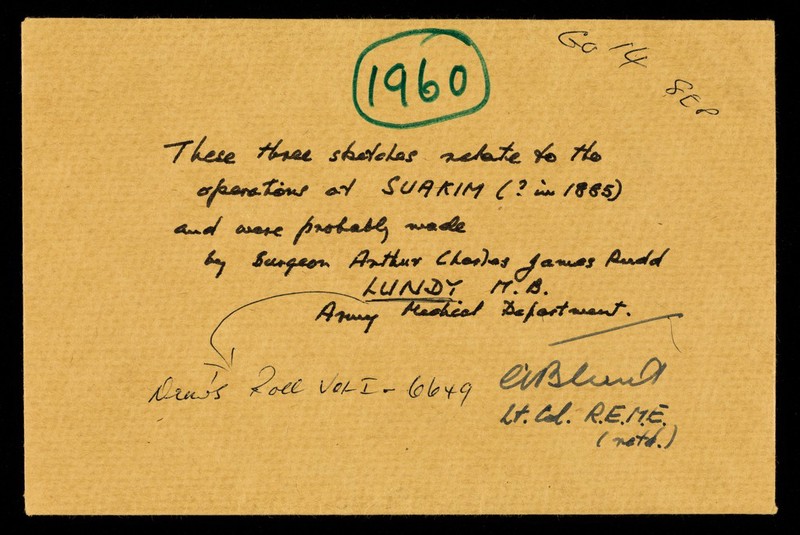 1960
Go 14
These three sketches relate to the
operations at SUAKIM (? in 1885)
and were probably made
by Surgeon Arthur Charles James Rudd
LUNDY M.B.
Army Medical Department.
Drew's Roll Vol I - 6649
Lt. Col. R.E.M.E.
(retd.)